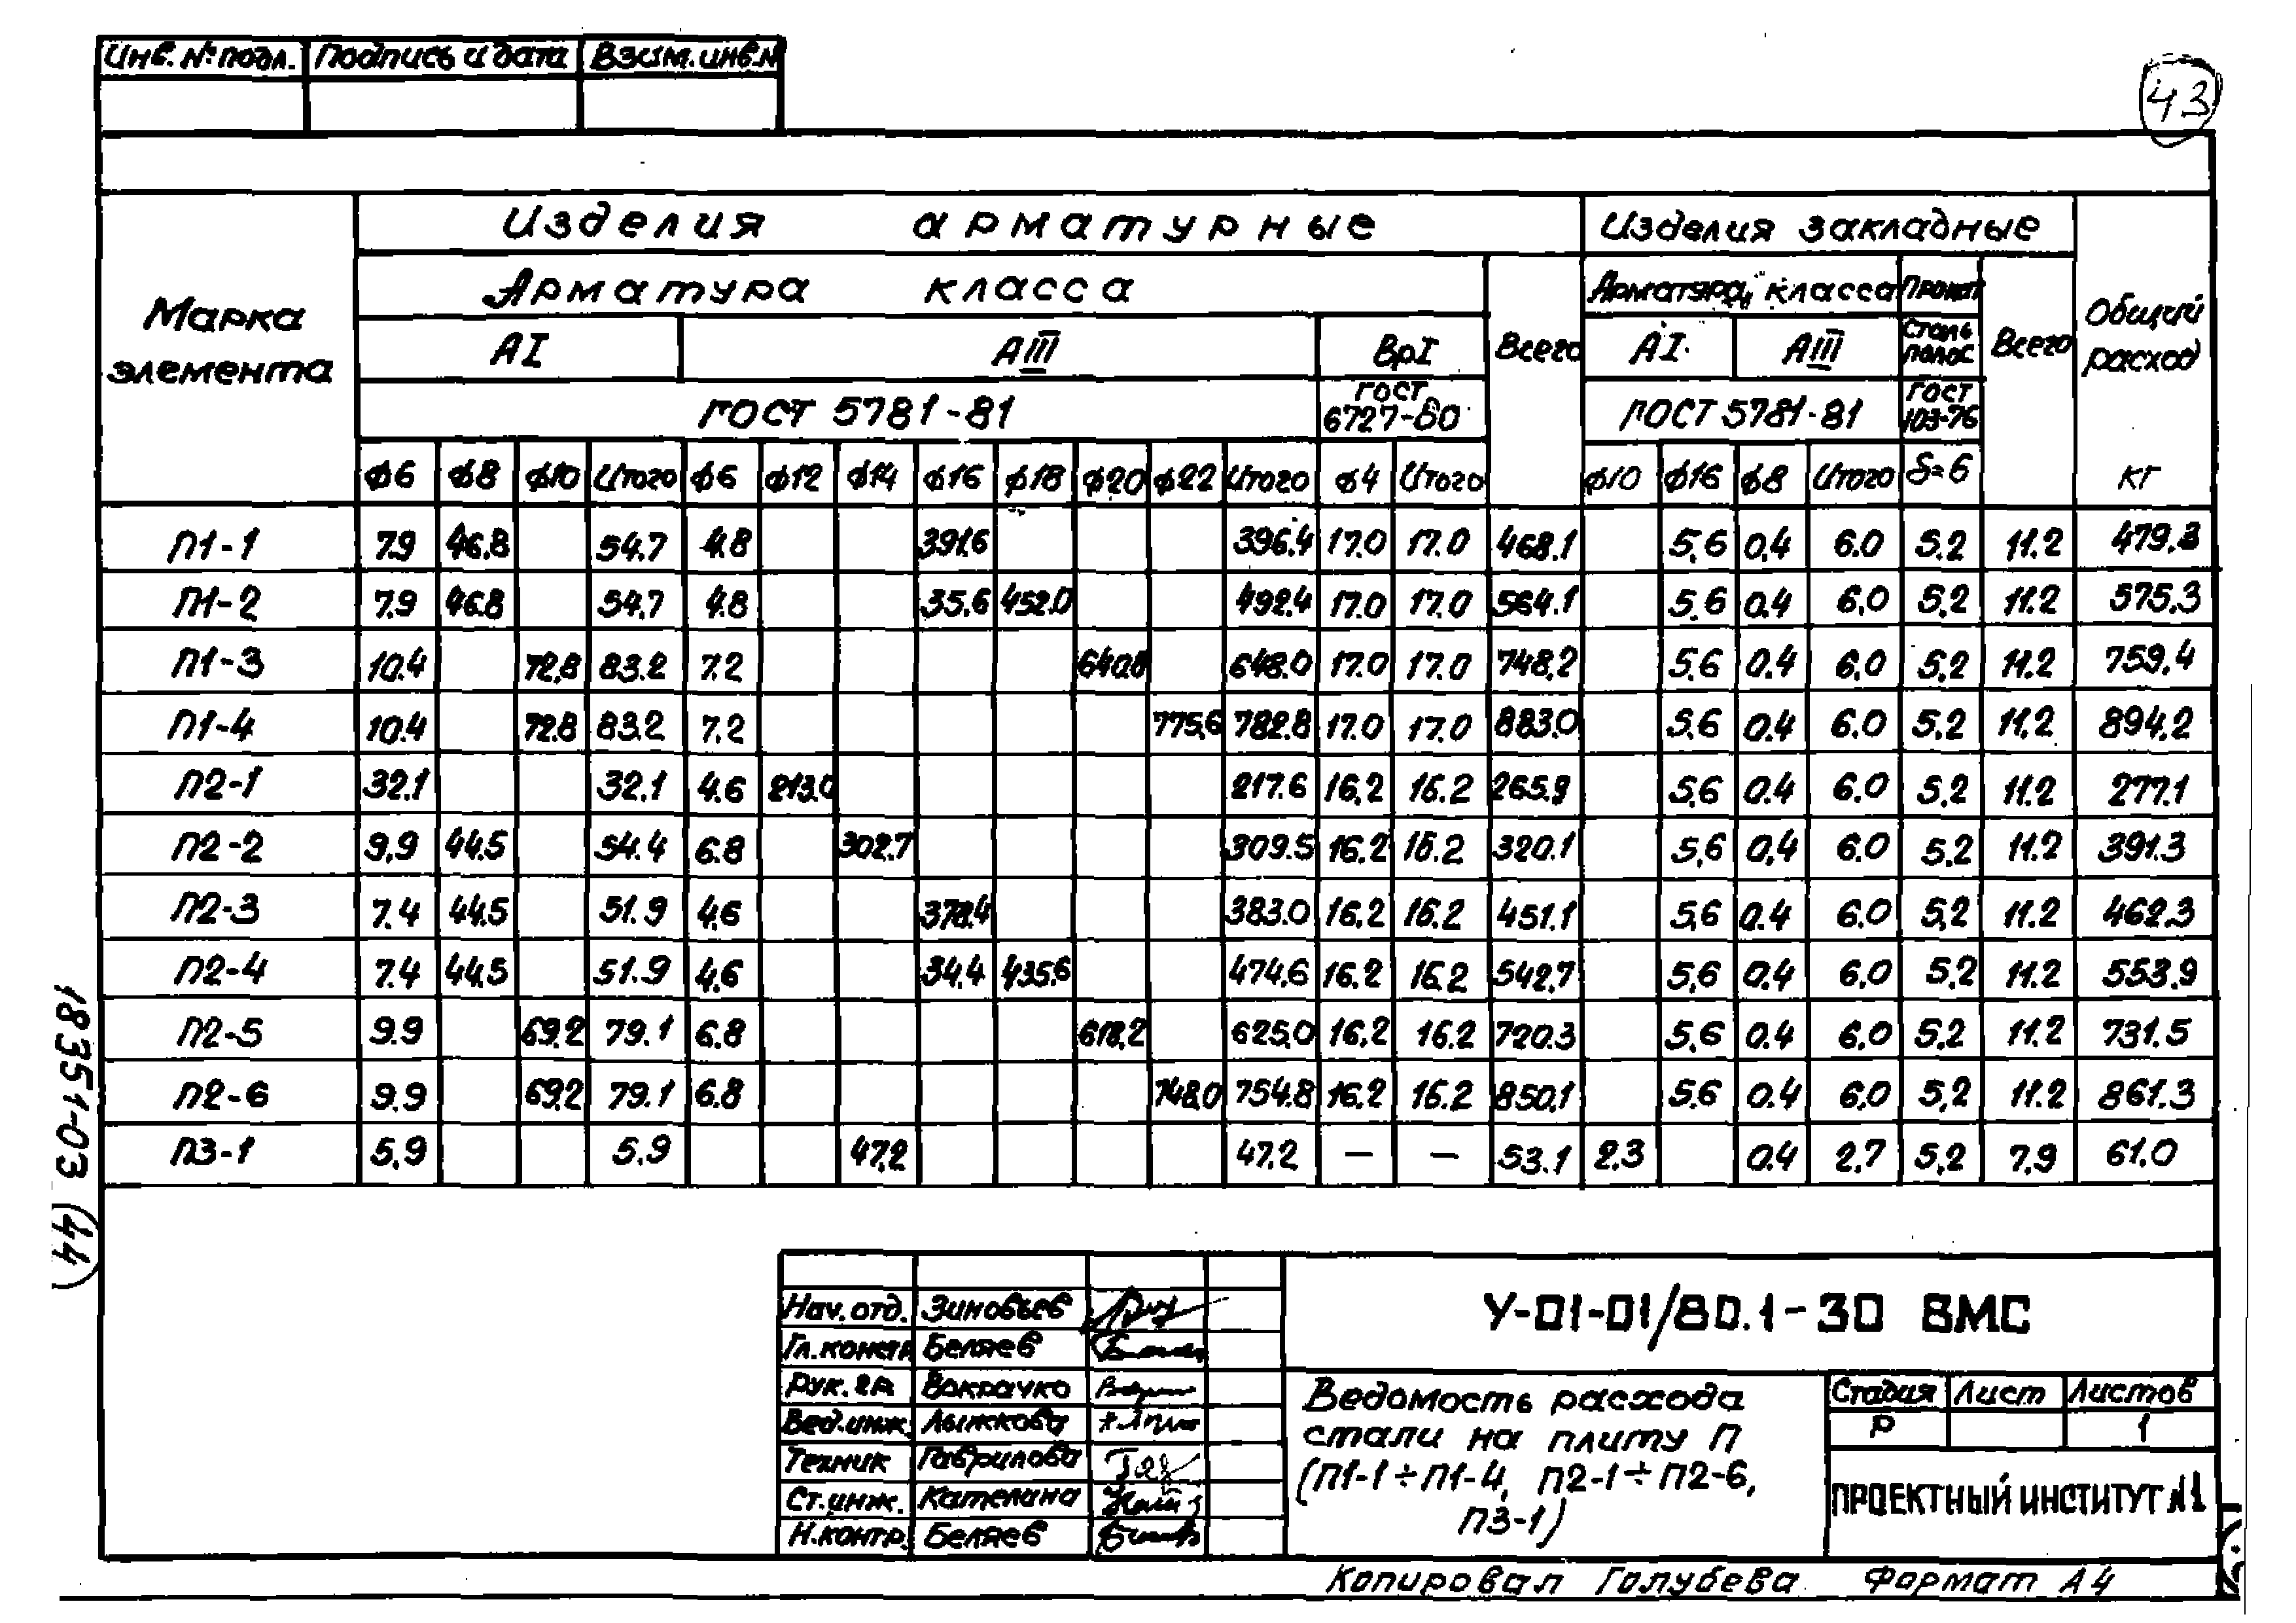 Инв. № подл. Подпись и дата Взам. инв. N
43
Марка элемента
Изделия арматурные
Изделия закладные
Общий расход кг
Арматура класса
Всего
Арматура класса
Прокат
Всего
АI АIII ВрI
АI АIII
Сталь полос
ГОСТ 5781-81
ГОСТ 6727-80
ГОСТ 5781-81
ГОСТ 103-76
ϕ6 ϕ8 ϕ10 Итого ϕ6 ϕ12 ϕ14 ϕ16 ϕ18 ϕ20 ϕ22 Итого ϕ4 Итого ϕ10 ϕ16 ϕ8 Итого δ=6
П1-1 7.9 46.8 54.7 4.8 391.6 396.4 17.0 17.0 468.1 5,6 0.4 6.0 5.2 11.2 479.3
П1-2 7.9 46.8 54.7 4.8 35.6 452.0 492.4 17.0 17.0 564.1 5.6 0.4 6.0 5.2 11.2 575.3
П1-3 10.4 72,8 83.2 7.2 640.8 648.0 17.0 17.0 748,2 5.6 0.4 6.0 5.2 11.2 759,4
П1-4 10.4 72.8 83.2 7.2 775,6 782.8 17.0 17.0 883.0 5.6 0.4 6.0 5.2 11.2 894.2
П2-1 32.1 32.1 4.6 213.0 217.6 16.2 16.2 265.9 5,6 0.4 6.0 5.2 11.2 277.1
П2-2 9.9 44.5 54.4 6.8 302.7 309.5 16.2 16.2 320.1 5,6 0.4 6.0 5.2 11.2 391.3
П2-3 7.4 44.5 51.9 4.6 378.4 383.0 16.2 16.2 451.1 5,6 0.4 6.0 5,2 11.2 462.3
П2-4 7.4 44.5 51.9 4.6 34.4 435.6 474.6 16.2 16.2 542.7 5,6 0.4 6.0 5.2 11.2 553.9
П2-5 9.9 69.2 79.1 6.8 618.2 625.0 16.2 16.2 720.3 5.6 0.4 6.0 5.2 11.2 731.5
П2-6 9.9 69.2 79.1 6.8 748.0 754.8 16.2 16.2 850.1 5.6 0.4 6.0 5,2 11.2 861.3
П3-1 5.9 5.9 47.2 47.2 — — 53.1 2.3 0.4 2.7 5,2 7.9 61.0
18351-03 (44)
Нач. отд. Зиновьев
Гл. констр Беляев
Рук. гр Вакрачко
Вед. инж. Лыжкова
Техник Гаврилова
Ст. инж. Кателина
Н. контр. Беляев
У-01-01/80.1-30 ВМС
Ведомость расхода
стали на плиту П
(П1-1÷П1-4, П2-1÷П2-6,
П3-1)
Стадия Лист Листов
Р 1
ПРОЕКТНЫЙ ИНСТИТУТ №1
Копировал Голубева Формат А4